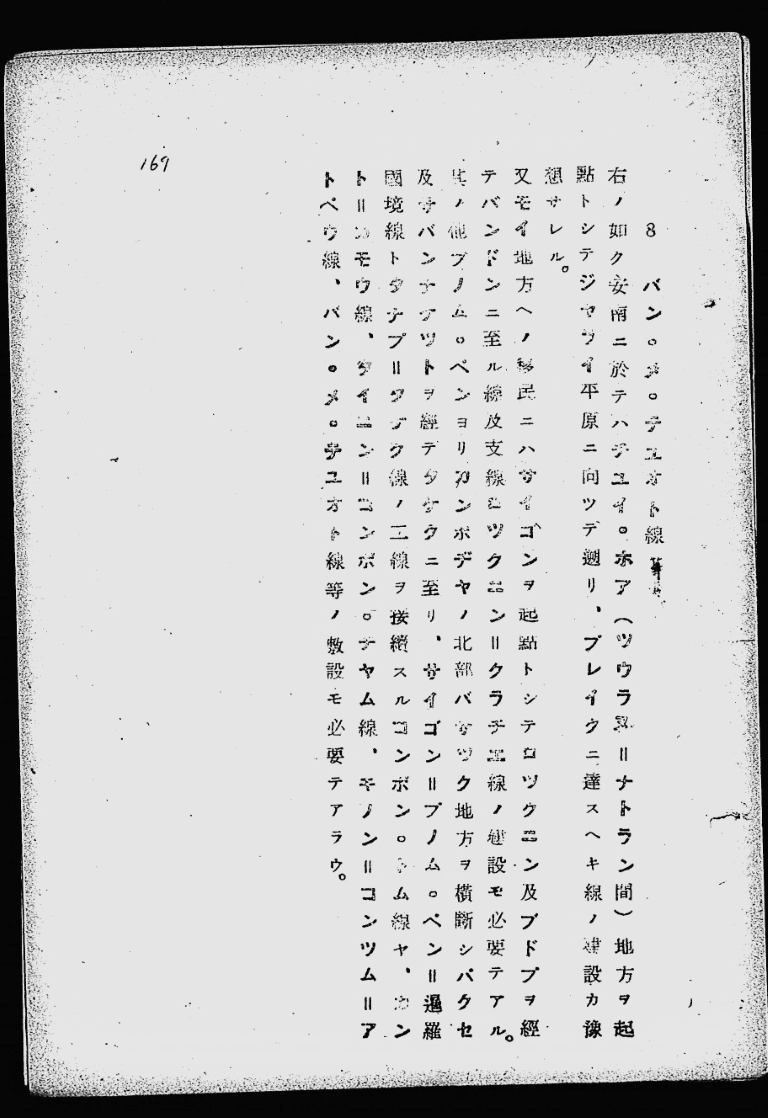 169
8 バン。メ。チユオト線
右ノ如ク安南ニ於テハチユイ。ホア（ツウラヌ＝ナトラン間）地方ヲ起
點トシテジヤライ平原ニ向ツテ遡リ、プレイクニ達スヘキ線ノ建設カ豫
想サレル。
又モイ地方ヘノ移民ニハサイゴンヲ起點トシテロツクニン及ブドプヲ經
テバンドンニ至ル線及支線ロツクニン＝クラチエ線ノ建設モ必要テアル。
其ノ他プノム。ペンヨリカンボヂヤノ北部バサツク地方ヲ横斷シパクセ
及サバンナケツトヲ經テタケクニ至リ、サイゴン＝プノム。ペン＝暹羅
國境線トタナプ＝タケク線ノ二線ヲ接續スルコンポン。トム線ヤ、カン
ト＝カモウ線、タイニン＝コンポン。チヤム線、キノン＝コンツム＝ア
トペウ線、バン。メ。チユオト線等ノ敷設モ必要テアラウ。